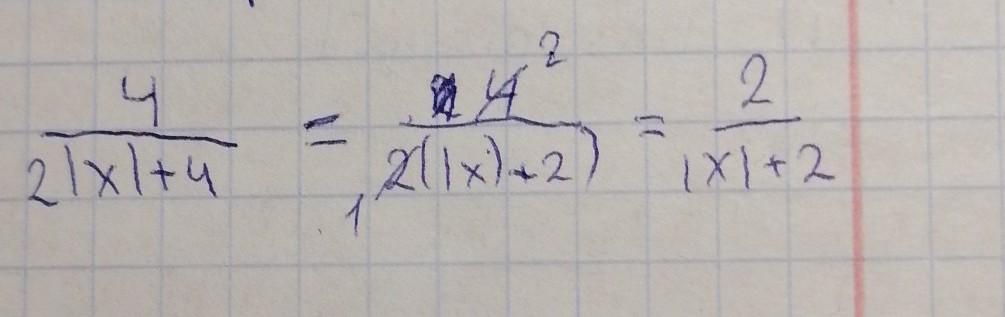 4/(2|x|+4) = 4²/(2(|x|+2)) = 2/(|x|+2)
1